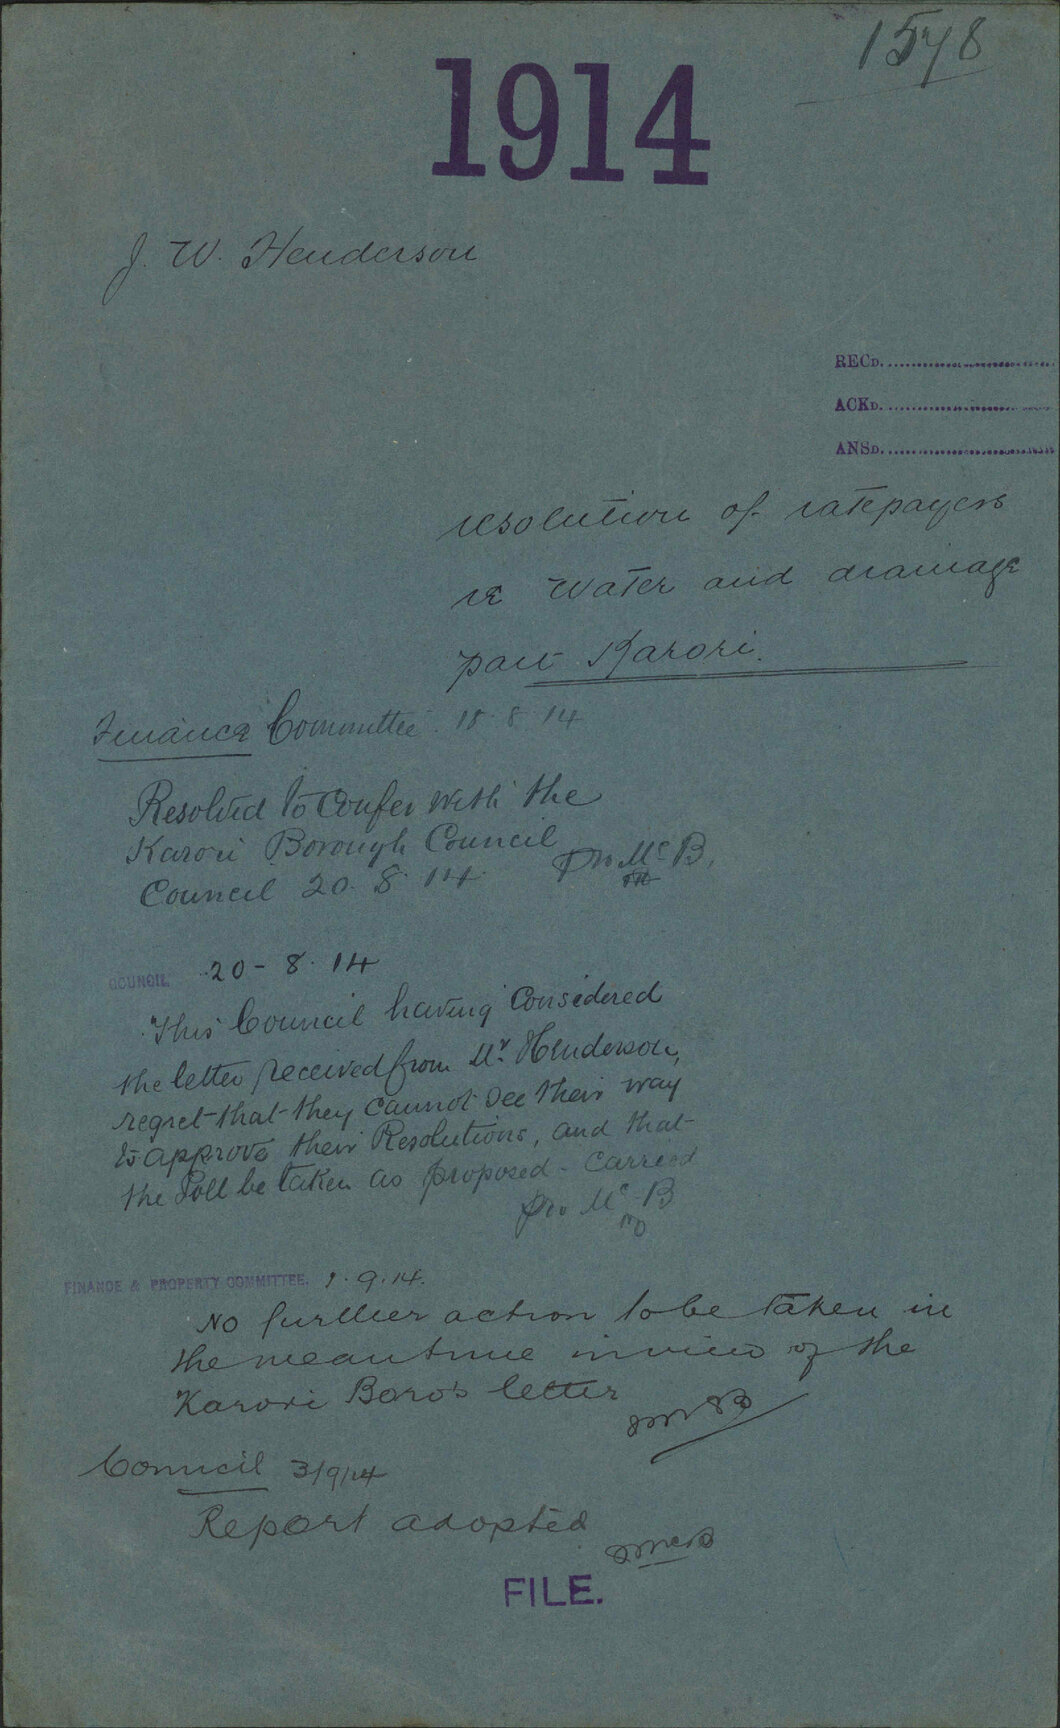 1578
1914
J. W. Henderson
RECD.
ACKD.
ANSD.
resolution of ratepayers
re Water and drainage
part Karori.
Finance Committee 18.8.14
Resolved to Confer with the
Karori Borough Council
McB.
Council 20.8.14
COUNCIL 20-8.14
This Council having Considered
the letter received from Mr Henderson,
regret that they cannot see their way
to approve their Resolutions, and that
the Poll be taken as proposed - Carried
McB
FINANCE & PROPERTY COMMITTEE. 1.9.14.
No further action to be taken in
the meantime in view of the
Karori Boro's letter
Council 3/9/14
Report adopted
FILE.